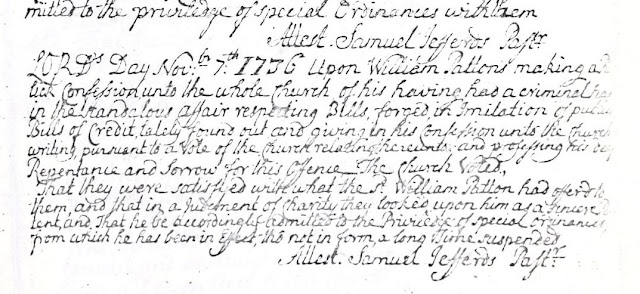 mitted to the priviledge of special Ordinances with them
Attest. Samuel Jefferds Pastr.
LORDs Day Novbr 7.th 1736 Upon William Pattons making a
lick Confession unto the whole Church of his having had a criminal ha
in the Scandalous affair respecting Bills, forged in Imitation of pub
Bills of Credit, lately found out and giving in his Confession unto the Church
writing pursuant to a Vote of the Church relating hereunto; and professing his
Repentance and Sorrow for this Offence The Church Voted,
That they were satisfied with what the sd. William Patton had offerd to
them, and that in a Judgment of charity they looked upon him as a sincere
tent, and That he be accordingly admitted to the Priviledge of special ordinances
from which he has been in Effect, tho not in form, a long Time suspended
Attest. Samuel Jefferds Pastr.